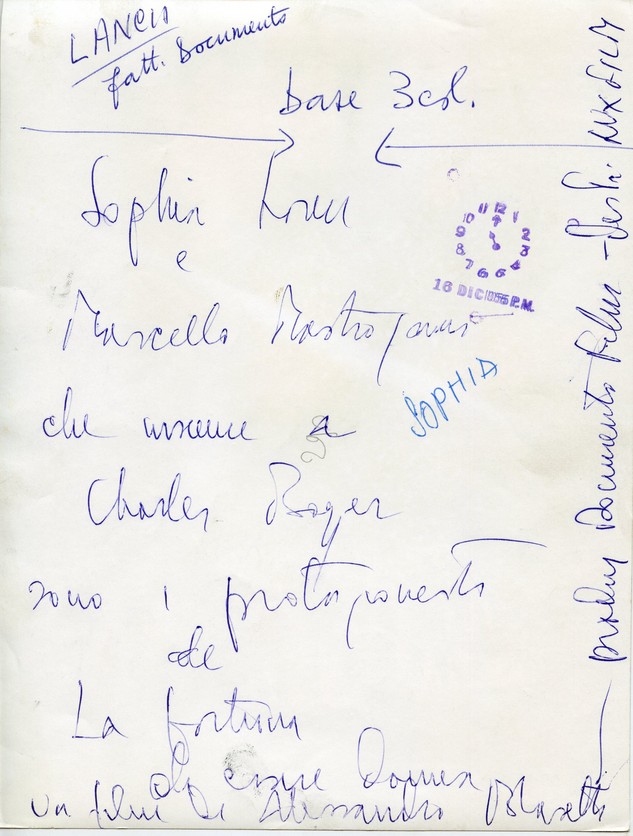 LANCIA
fatt. Documento
base 3 col.
Sophia Loren
e
Marcello Mastroianni
SOPHIA
che insieme a
Charles Boyer
sono i protagonisti
de
La fortuna
di essere donna
un film di Alessandro Blasetti
Documento Film - Distr: LUX FILM
11 12 1
10 2
9 3
8 4
7 6 6
16 DIC 1955 P.M.